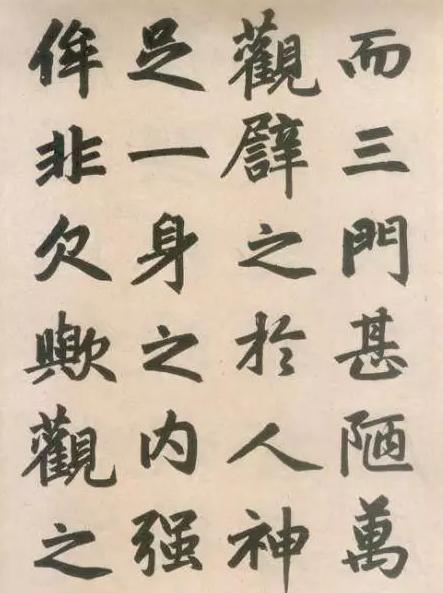 而三門甚陋萬
觀譬之於人神
足一身之内强
侔非欠歟觀之